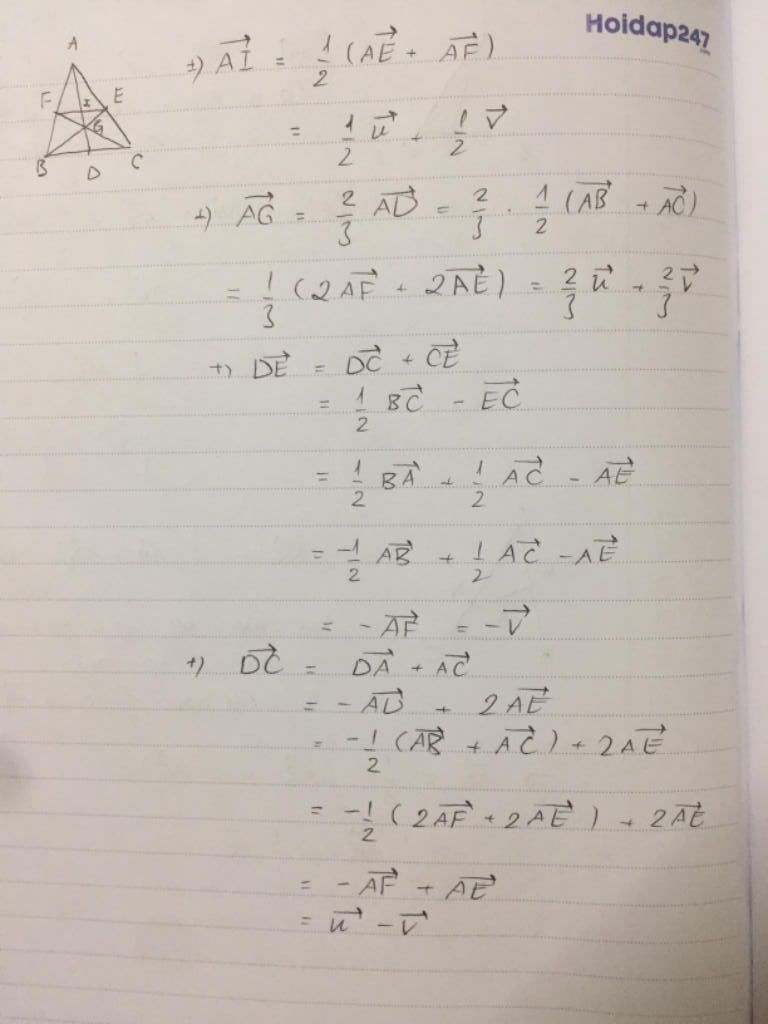 Hoidap247
.com
A
F I E
G
B D C
+) $\overrightarrow{AI} = \frac{1}{2} (\overrightarrow{AE} + \overrightarrow{AF})$
$= \frac{1}{2} \overrightarrow{u} + \frac{1}{2} \overrightarrow{v}$
+) $\overrightarrow{AG} = \frac{2}{3} \overrightarrow{AD} = \frac{2}{3} \cdot \frac{1}{2} (\overrightarrow{AB} + \overrightarrow{AC})$
$= \frac{1}{3} (2\overrightarrow{AF} + 2\overrightarrow{AE}) = \frac{2}{3} \overrightarrow{u} + \frac{2}{3} \overrightarrow{v}$
+) $\overrightarrow{DE} = \overrightarrow{DC} + \overrightarrow{CE}$
$= \frac{1}{2} \overrightarrow{BC} - \overrightarrow{EC}$
$= \frac{1}{2} \overrightarrow{BA} + \frac{1}{2} \overrightarrow{AC} - \overrightarrow{AE}$
$= -\frac{1}{2} \overrightarrow{AB} + \frac{1}{2} \overrightarrow{AC} - \overrightarrow{AE}$
$= -\overrightarrow{AF} = -\overrightarrow{v}$
+) $\overrightarrow{DC} = \overrightarrow{DA} + \overrightarrow{AC}$
$= -\overrightarrow{AD} + 2\overrightarrow{AE}$
$= -\frac{1}{2} (\overrightarrow{AB} + \overrightarrow{AC}) + 2\overrightarrow{AE}$
$= -\frac{1}{2} (2\overrightarrow{AF} + 2\overrightarrow{AE}) + 2\overrightarrow{AE}$
$= -\overrightarrow{AF} + \overrightarrow{AE}$
$= \overrightarrow{u} - \overrightarrow{v}$